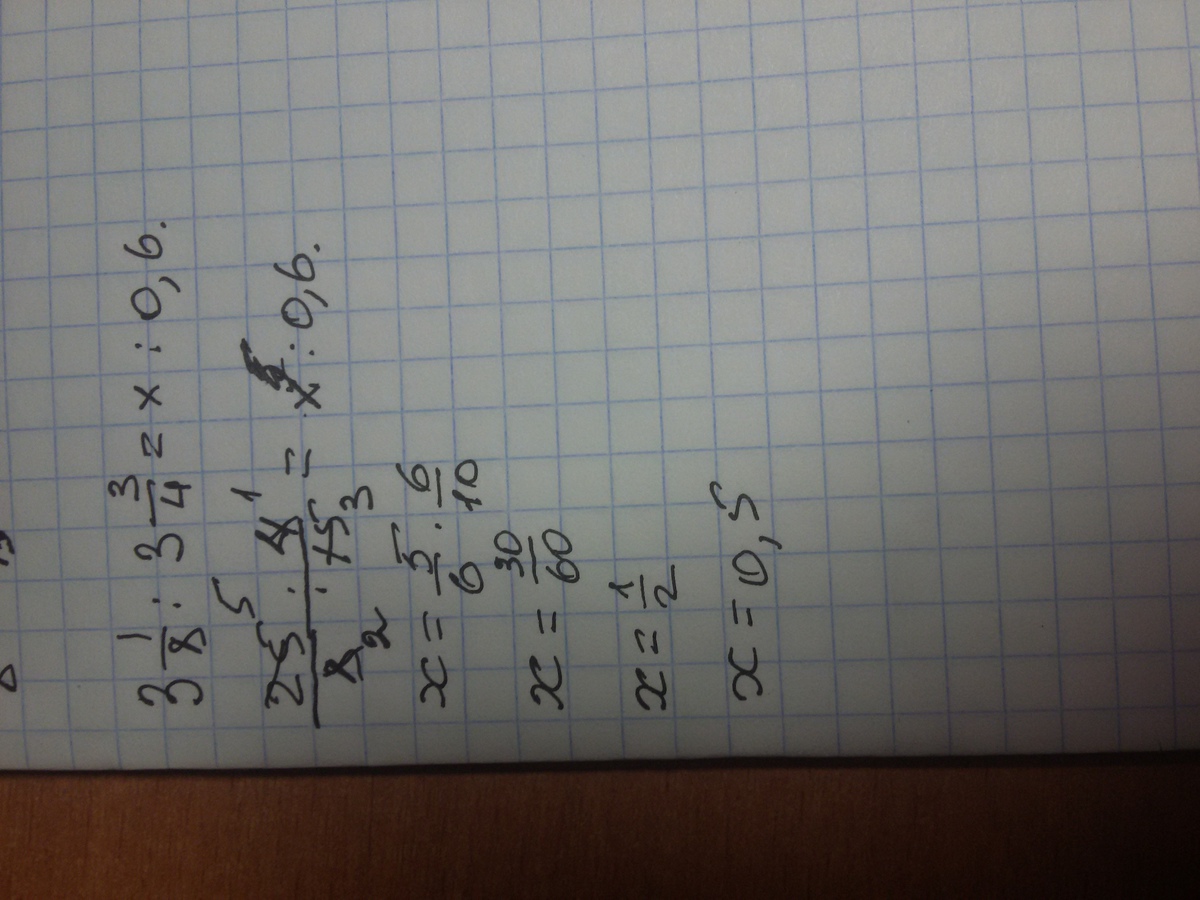 3 1/8 : 3 3/4 = x : 0,6.
25 5 · 4 1 / 8 2 · 15 3 = x : 0,6.
x = 5/6 · 6/10
x = 30/60
x = 1/2
x = 0,5